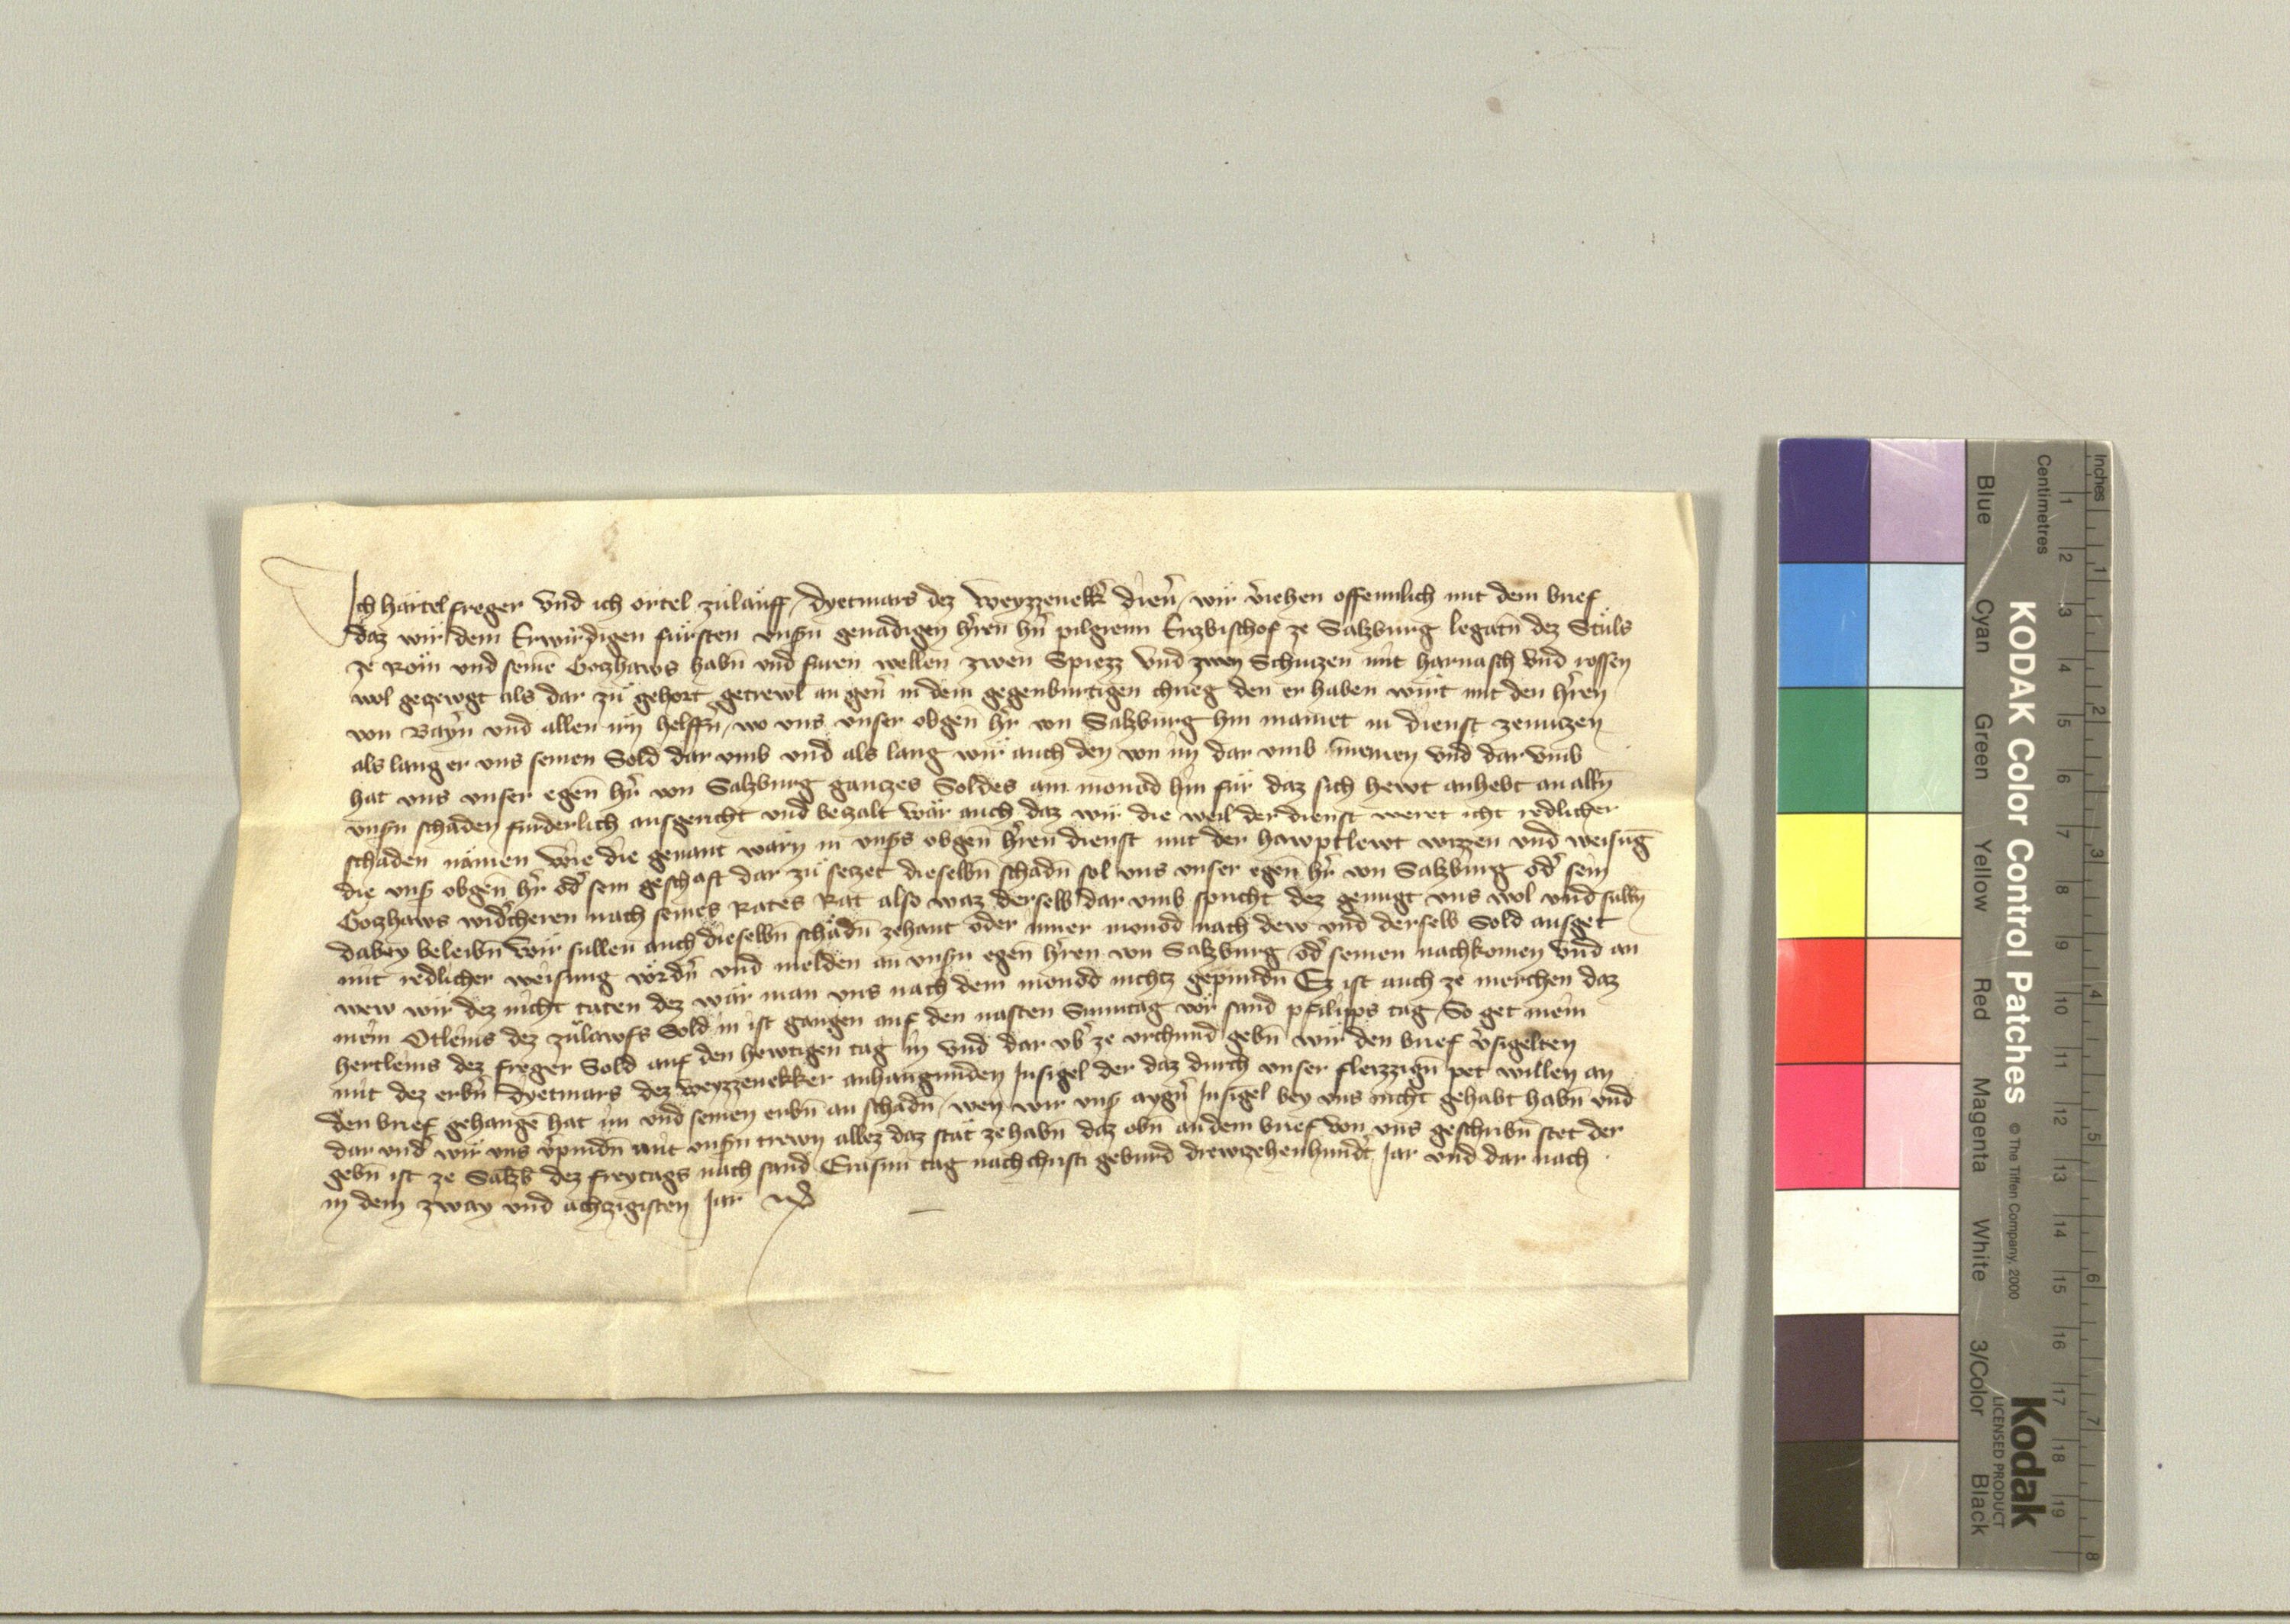 Ich Hartel freger vnd ich ortel zuͤlauff dyetmars dez Weyzzenekk̉ dien̉ wir v̉iehen offennlich mit dem brief
daz wir dem Erwirdigen fursten vnsn̄ genadigen hr̄en hn̄ pilgreim Erzbischof ze Salzburg legatn̄ dez Stuls
ze Rom vnd seinē Gotzhaws habn̄ vnd furen wellen zwen Spiezz vnd zwen Schutzen mit harnasch vnd rossen
wol gezewgt als dar zuͤ gehort getrewl an gen̉ in dem gegenburtigen chrieg den er haben wirt mit den hr̄en
von Bayrn̄ vnd allen irn helffrn̄ wo vns vnser obgen̄ hr̄ von Salzburg hin mainet in dienst zenutzen
als lang er vns seinen Sold dar vmb vnd als lang wir auch den von im dar vmb nemen vnd dar vmb
hat vns vnser egen̄ hr̄ von Salzburg gantzes Soldes ain monad hin fur daz sich hewt anhebt an alln̄
vnsn̄ schaden furderlich ausgericht vnd bezalt wär auch daz wir die weil der dienst weret icht redlicher
schaden nämen wie die genant warn in vnsꝰs obgen̄ hr̄en dienst mit der hawptlewt wizzen vnd weisūg
die vnsꝰ obgen̄ hr̄ od̉ sein geschaft dar zuͤ setzet dieselbn̄ schadn̄ sol vns vnser egen̄ hr̄ von Salzburg od̉ sein
Gotzhaws wid̉cheren nach seines Rates Rat also waz derselb dar vmb spricht dez genugt vns wol vnd sulln̄
dabey beleibn̄ wir sullen auch dieselbn̄ schadn̄ zehant oder inner monod nach dew vnd derselb Sold ausget
mit redlicher weisung vordrn̄ vnd melden an vnsn̄ egen̄ hr̄en von Salzburg od̉ seinen nachkomen vnd an
wew wir dez nicht taten dez wär man vns nach dem monod nichtz gepundn̄ Ez ist auch ze merchen daz
mein Otleins dez zuͤlawfs Sold in ist gangen auf den nasten Sunntag vor sand philipps tag So get mein
hertleins dez freger Sold auf den hewtigen tag in vnd dar vb̉ ze vrchund gebn̄ wir den brief v̉sigelten
mit dez erbn̉ dyetmars dez weyzzenekker anhangunden Insigel der daz durch vnser fleizzign̄ pet willen an
den brief gehangē hat im vnd seinen erbn̄ an schadn̄ wen wir vnsꝰ aygn̉ Insigel bey vns nicht gehabt habn̄ vnd
dar vnd̉ wir vns v̉pindn̄ mit vnsn̄ trewn allez daz stät ze habn̄ daz obn̄ an dem brief von vns geschribn̄ stet der
gebn̄ ist ze Salzb̉ dez freytags nach sand Erasm tag nach christi geburd drewzehenhund̉t Jar vnd dar nach
in dem zway vnd achzigisten Jar
KODAK Color Control Patches © The Tiffen Company, 2000
Kodak
LICENSED PRODUCT
Inches 1 2 3 4 5 6 7 8
Centimetres 1 2 3 4 5 6 7 8 9 10 11 12 13 14 15 16 17 18 19
Blue Cyan Green Yellow Red Magenta White 3/Color Black